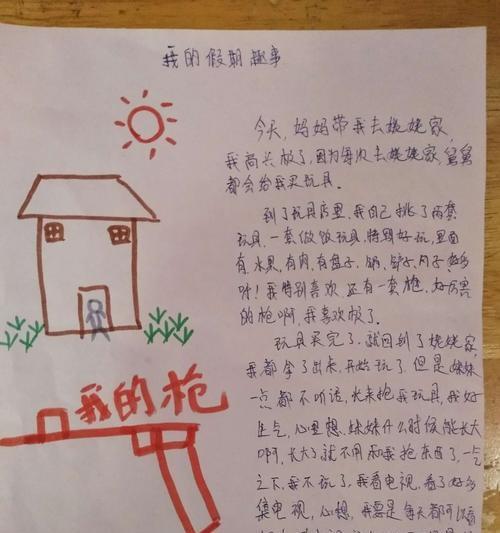 我的假期趣事
今天,妈妈带我去姥姥家,
我高兴极了,因为每次去姥姥家,舅舅
都会给我买玩具。
到了玩具店里,我自己挑了两套
玩具,一套做饭玩具,特别好玩,里面
有水果,有肉,有盘子、锅、铲子、勺子,好多
呀!我特别喜欢,还有一套枪,好厉害
的枪啊,我喜欢极了。
玩具买完了,就回到了姥姥家,
我都拿了出来,开始玩了,但是妹妹
一点都不听话,老来抢我玩具,我好
生气,心里想,妹妹什么时候能长大
啊,长大了就不用和我抢东西了,一气
之下,我不玩了,我看电视,看了好多
集电视,心想,我要是每天都可以看
我的枪